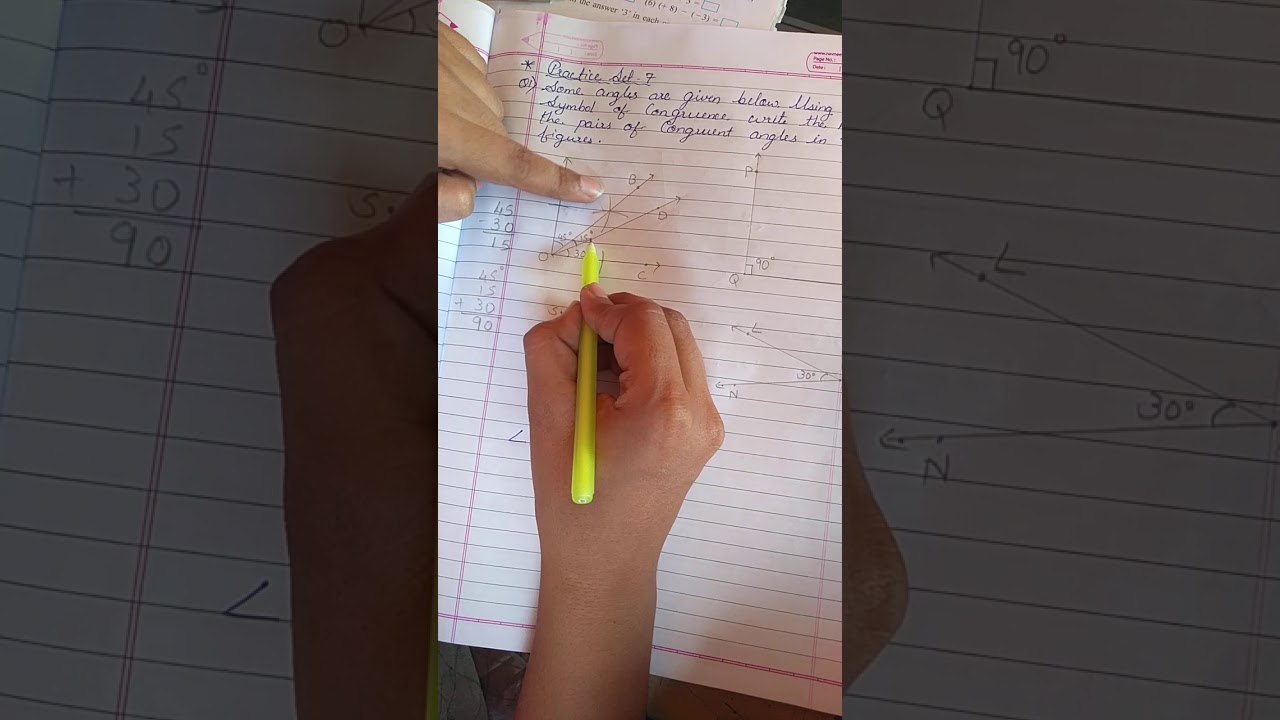 the answer '3' in each
(6) (+ 8)
(−3) =
Page No.:
Date:
* Practice Set-7
Q1) Some angles are given below. Using
Symbol of Congruence write the
the pairs of Congruent angles in
figures.
B
D
45° 15°
30
O
C
P
Q
90°
45
- 30
15
45°
15
+ 30
90
S.
L
N
30°
<
O
45°
15
+ 30
90
S.
<
90°
Q
L
30°
N